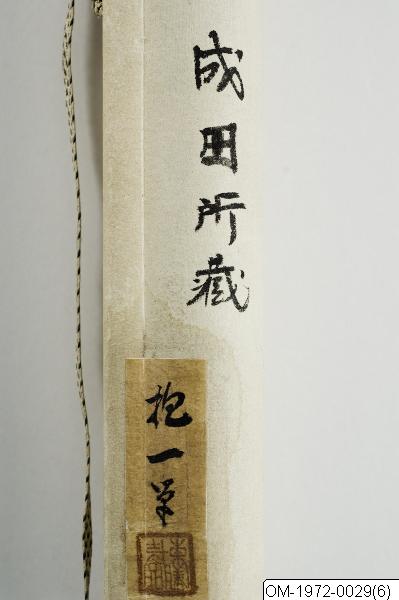 成田所蔵
抱一筆
OM-1972-0029(6)